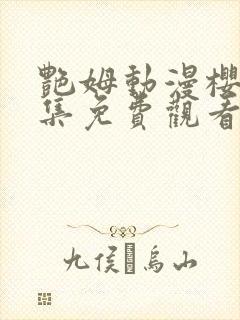 艷姆動漫櫻
集免費觀看
九侯烏山